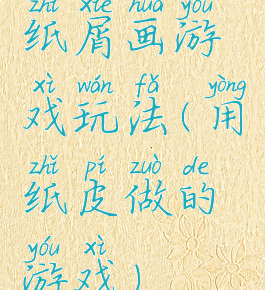 zhǐ xiè huà yóu
纸屑画游
xì wán fǎ yòng
戏玩法(用
zhǐ pí zuò de
纸皮做的
yóu xì
游戏)